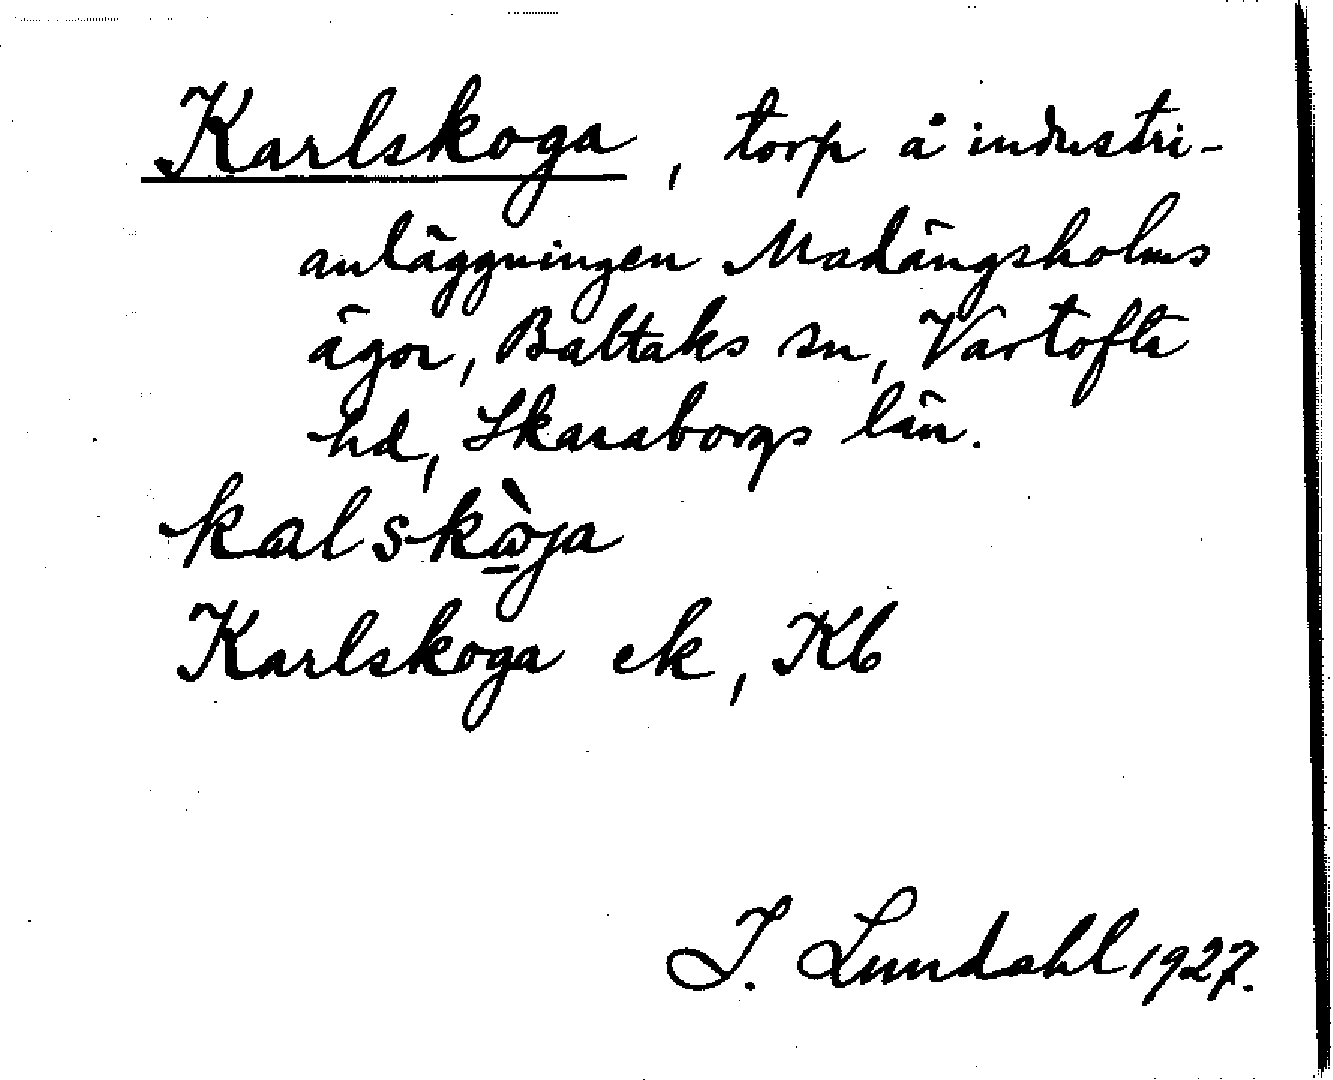 Karlskoga, torp å industri-
anläggningen Madängsholms
ägor, Baltaks sn, Vartofta
hd, Skaraborgs län.
kalskὼja
Karlskoga ek, Kb
I. Lundahl 1927.